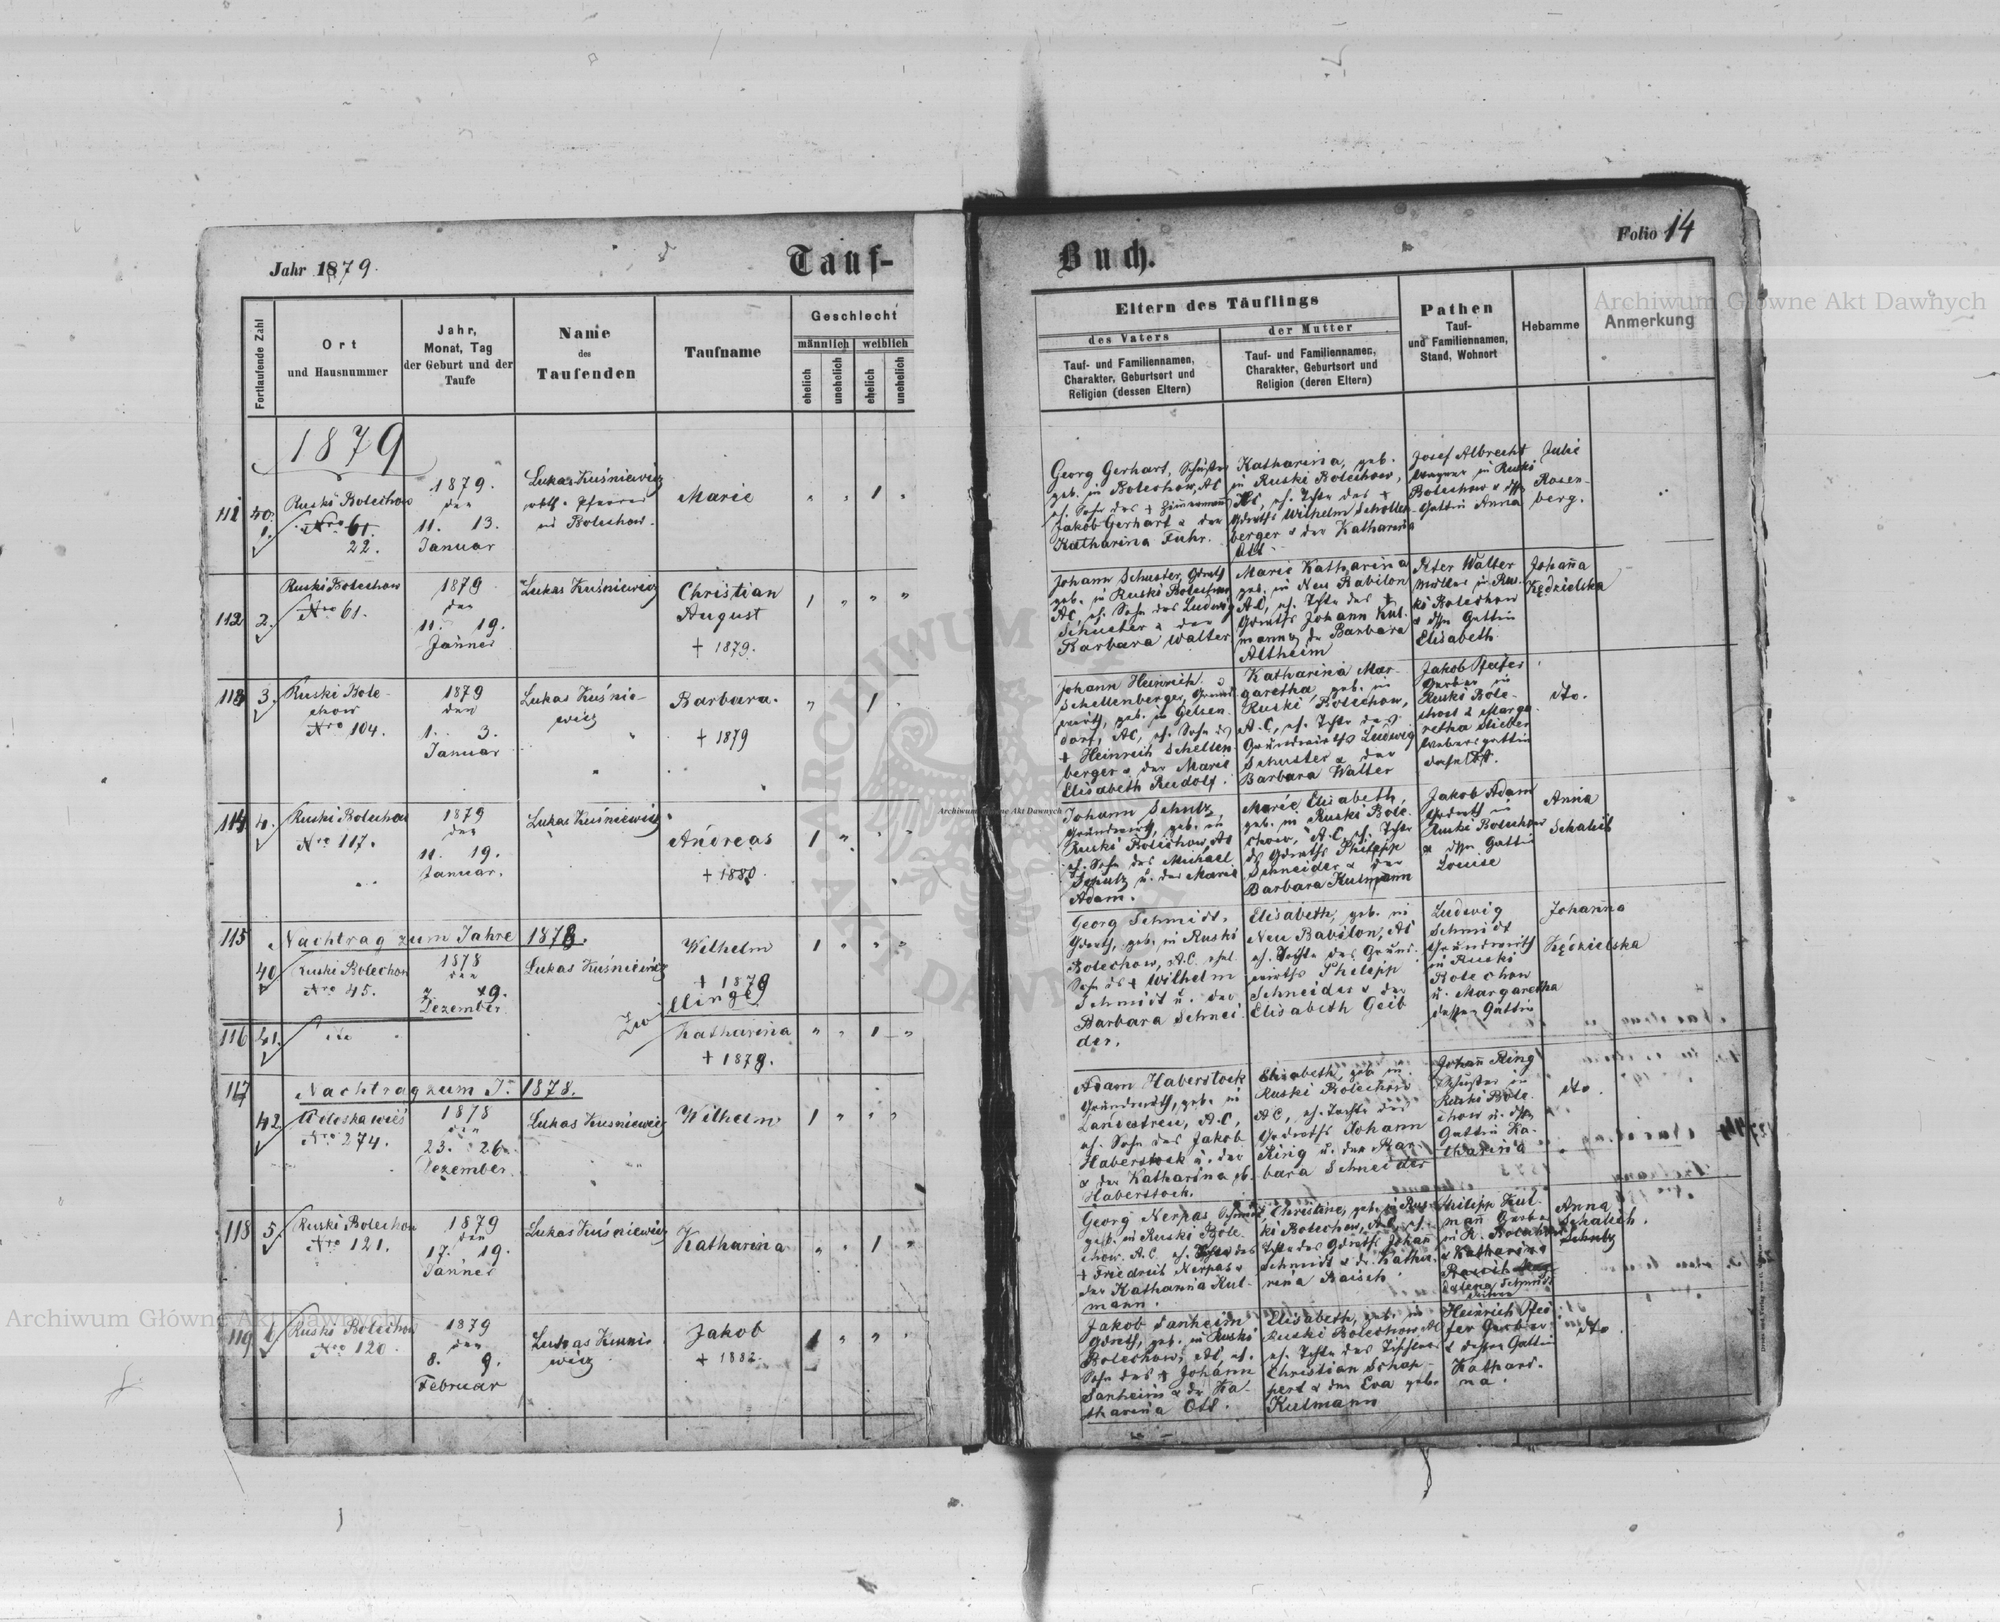 Jahr 1879.
Tauf-
Buch.
Folio 14
Fortlaufende Zahl
Ort
und Hausnummer
Jahr,
Monat, Tag
der Geburt und der
Taufe
Name
des
Taufenden
Taufname
Geschlecht
männlich
weiblich
ehelich
unehelich
ehelich
unehelich
Eltern des Täuflings
des Vaters
Tauf- und Familiennamen,
Charakter, Geburtsort und
Religion (dessen Eltern)
der Mutter
Tauf- und Familiennamen,
Charakter, Geburtsort und
Religion (deren Eltern)
Pathen
Tauf-
und Familiennamen,
Stand, Wohnort
Hebamme
Anmerkung
1879
111
1.
Ruski Bolechow
Nro 61.
22.
1879.
den
11. 13.
Januar
Lukas Kuśniewicz
in Bolechow.
Marie
1
Georg Gerhart, Schuster
geb. in Bolechow, AC
eh. Sohn des + Zimmermann
Jakob Gerhart & der
Katharina Fuhr.
Katharina, geb.
in Ruski Bolechow,
AC, eh. Tchte des +
Gdwrths Wilhelm Schollen
berger & der Katharina
Ott.
Josef Albrecht
Wagner in Ruski
Bolechow & dssn
Gattin Anna
Julie
Rosen-
berg.
112
2.
Ruski Bolechow
Nro 61.
1879
den
11. 19.
Jänner
Lukas Kuśniewicz
Christian
August
+ 1879.
1
Johann Schuster, Gdwrth
geb. in Ruski Bolechow
AC, eh. Sohn des Ludwig
Schuster & der
Barbara Walter
Marie Katharina
geb. in Neu Babilon
AC, eh. Tchte des +
Gdwrths Johann Kul
mann & der Barbara
Altheim
Peter Walter
Müller in Rus-
ki Bolechow
& dssn Gattin
Elisabeth
Johanna
Kędzielska
113
3.
Ruski Bole-
chow
Nro 104.
1879
den
1. 3.
Januar
Lukas Kuśnie-
wicz
Barbara.
+ 1879
1
Johann Heinrich
Schellenberger, Grund
wirth, geb. in Gelsen
dorf, AC, eh. Sohn des
+ Heinrich Schellen
berger & der Marie
Elisabeth Rudolf.
Katharina Mar-
garetha, geb. in
Ruski Bolechow,
A.C, eh. Tchte des
Grundwirths Ludwig
Schuster & der
Barbara Walter
Jakob Pfeifer
Gerber in
Ruski Bole-
chow & Marga
retha Stieber
Webersgattin
daselbst.
dto.
114
4.
Ruski Bolechow
Nro 117.
1879
den
11. 19.
Januar.
Lukas Kuśniewicz
Andreas
+ 1880
1
Johann Schutz,
Grundwirth, geb. in
Ruski Bolechow, AC
eh. Sohn des Michael
Schutz u. der Marie
Adam.
Marie Elisabeth,
geb. in Ruski Bole-
chow, A.C, eh. Tchte
des Gdwrths Philipp
Schneider & der
Barbara Kulmann
Jakob Adam
Gdwrth in
Ruski Bolechow
& dssn Gattin
Louise
Anna
Schalich
115
Nachtrag zum Jahre 1878.
40
Ruski Bolechow
Nro 45.
1878
den
9.
Dezember
Lukas Kuśniewicz
Wilhelm
+ 1879
1
Zwillinge
Georg Schmidt,
Gdwrth, geb. in Ruski
Bolechow, A.C. ehel.
Sohn des + Wilhelm
Schmidt u. der
Barbara Schnei
der.
Elisabeth, geb. in
Neu Babilon, AC
eh. Tochte des Grund
wirths Philipp
Schneider & der
Elisabeth Geib
Ludwig
Schmidt
Grundwirth
in Ruski
Bolechow
u. Margaretha
dessen Gattin
Johanna
Kędzielska
116
41.
dto
Katharina
+ 1878.
1
117
Nachtrag zum J. 1878.
42
Wołoska wieś
Nro 274.
1878
den
23. 26.
Dezember
Lukas Kuśniewicz
Wilhelm
1
Adam Haberstock
Grundwirth, geb. in
Landestreu, A.C,
eh. Sohn des Jakob
Haberstock u. der
& der Katharina gb.
Haberstock.
Elisabeth, geb. in
Ruski Bolechow
AC, eh. Tochte des
Gdwrths Johann
Ring u. der Bar
bara Schneider
Johann Ring
Schuster in
Ruski Bole-
chow u. dssn
Gattin Ka-
tharina
dto.
118
5.
Ruski Bolechow
Nro 121.
1879
den
17. 19.
Jänner
Lukas Kuśniewicz
Katharina
1
Georg Nerpas
geb. in Ruski Bole
chow, A.C. eh. Sohn des
+ Friedrich Nerpas &
der Katharina Kul-
mann.
Christine, geb. in Rus
ki Bolechow, AC, eh.
Tchte des Gdwrths Johann
Schmidt & der Katha-
rina Baisch.
Philipp Kul-
mann Gerber
in R. Bolechow
& Katharina
Anna
Schalich.
119
6
Ruski Bolechow
Nro 120.
1879
den
8. 9.
Februar
Lukas Kuśnie
wicz
Jakob
+ 1882.
1
Jakob Sanheim
Gdwrth, geb. in Ruski
Bolechow, AC, eh.
Sohn des + Johann
Sanheim & der Ka-
tharina Ott.
Elisabeth, geb. in
Ruski Bolechow AC
eh. Tchte des Tischlers
Christian Schap-
pert & der Eva geb.
Kulmann
Heinrich Pfei
fer Gerber
& dessen Gattin
Kathari-
na.
dto.
Archiwum Główne Akt Dawnych
Archiwum Główne Akt Dawnych
Archiwum Główne Akt Dawnych